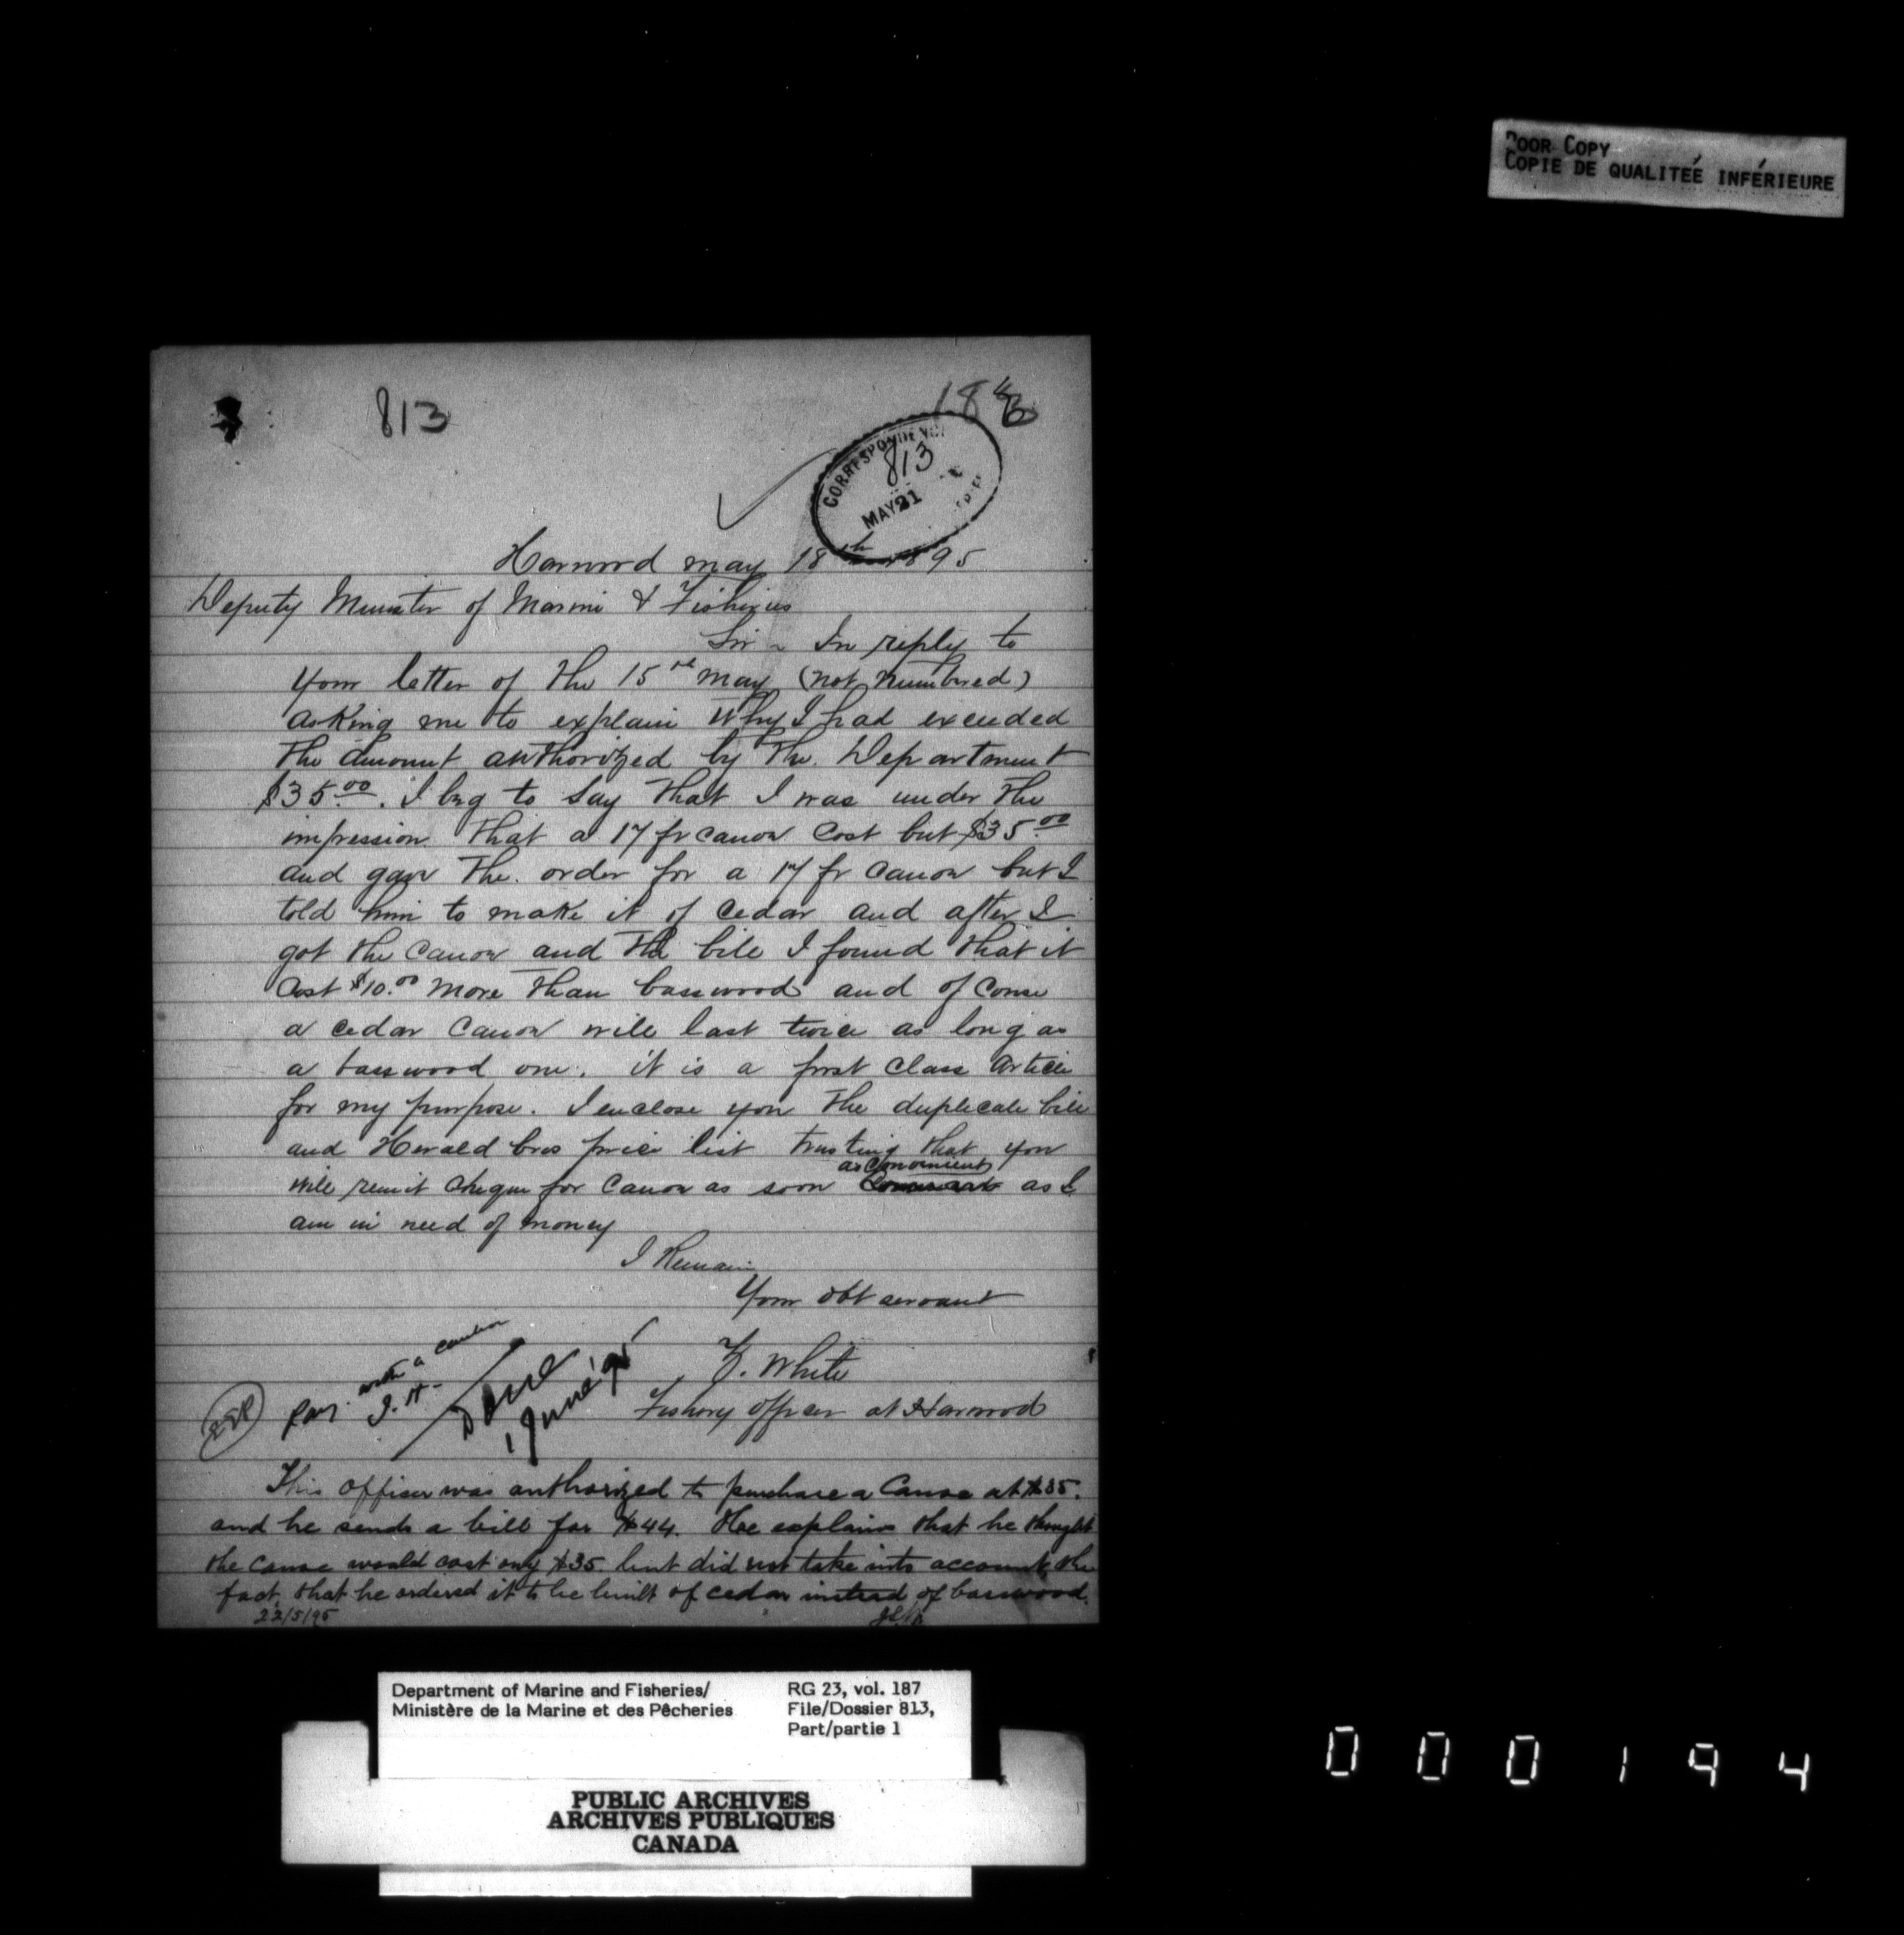 POOR COPY
COPIE DE QUALITEÉ INFÉRIEURE
813
18
CORRESPONDENCE
813
MAY 21
Harwood may 18th 1895
Deputy Minister of Marine & Fisheries
Sir - In reply to
your letter of the 15th may (not numbered)
asking me to explain why I had exceeded
the amount authorized by the Department
$35.00. I beg to say that I was under the
impression that a 17 ft canoe cost but $35.00
and gave the order for a 17 ft canoe but I
told him to make it of cedar and after I
got the canoe and the bill I found that it
cost $10.00 more than basswood and of course
a cedar canoe will last twice as long as
a basswood one. it is a first class article
for my purpose. I enclose you the duplicate bill
and Herald bros price list trusting that you
as convenient
will remit cheque for canoe as soon as I
am in need of money
I Remain
Your obt servant
Z. White
Fishery officer at Harwood
Pay. with a caution
J. H.
Done
1 June '95
This officer was authorized to purchase a Canoe at $35.
and he sends a bill for $44. He explains that he thought
the canoe would cost only $35. but did not take into account the
fact, that he ordered it to be built of cedar instead of basswood.
22/5/95
Department of Marine and Fisheries/
Ministère de la Marine et des Pêcheries
RG 23, vol. 187
File/Dossier 813,
Part/partie 1
PUBLIC ARCHIVES
ARCHIVES PUBLIQUES
CANADA
000194